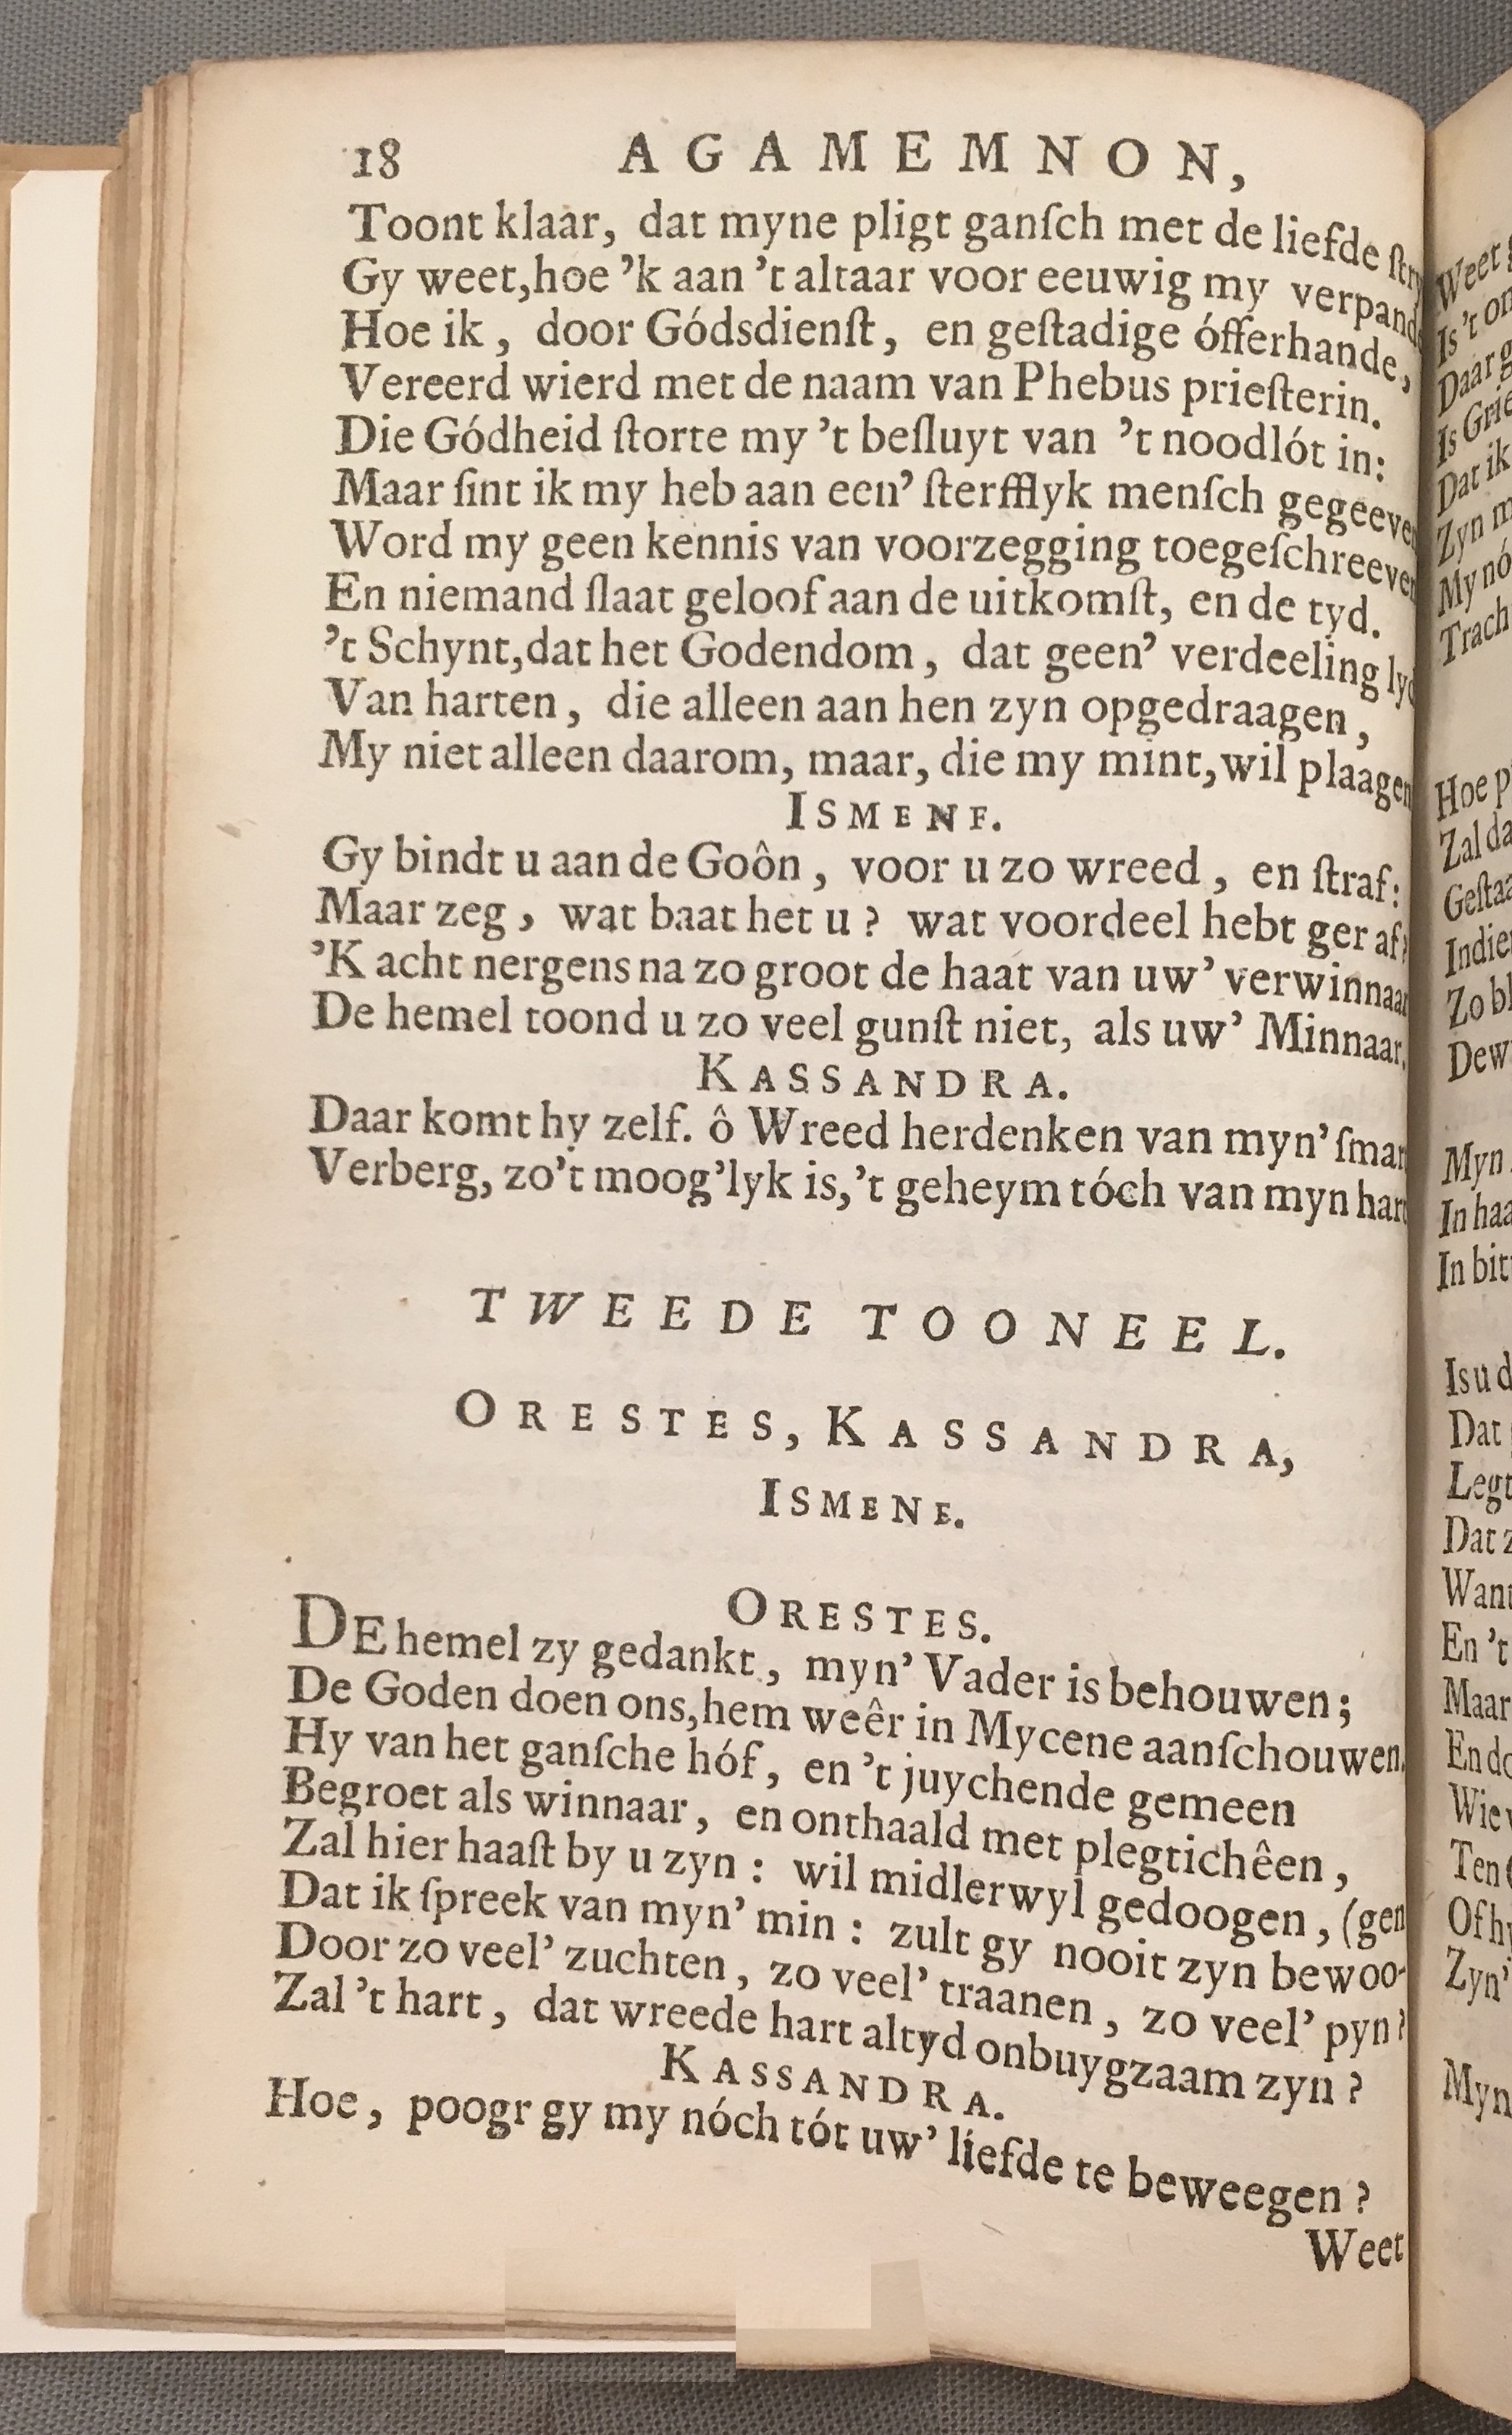 18 AGAMEMNON,
Toont klaar, dat myne pligt ganſch met de liefde
Gy weet,hoe ’k aan ’t altaar voor eeuwig my
Hoe ik, door Gódsdienſt, en geſtadige ófferhande,
Vereerd wierd met de naam van Phebus prieſterin.
Die Gódheid ſtorte my ’t beſluyt van ’t noodlót in:
Maar ſint ik my heb aan een’ ſterfflyk menſch
Word my geen kennis van voorzegging
En niemand ſlaat geloof aan de uitkomſt, en de tyd.
’t Schynt,dat het Godendom, dat geen’ verdeeling
Van harten, die alleen aan hen zyn opgedraagen,
My niet alleen daarom, maar, die my mint,wil plaagen
ISMENF.
Gy bindt u aan de Goôn, voor u zo wreed, en ſtraf:
Maar zeg, wat baat het u? wat voordeel hebt ger af?
’K acht nergens na zo groot de haat van uw’ verwinnaar
De hemel toond u zo veel gunſt niet, als uw’ Minnaar.
KASSANDRA.
Daar komt hy zelf. ô Wreed herdenken van myn’
Verberg, zo’t moog’lyk is,’t geheym tóch van myn
TWEEDE TOONEEL.
ORESTES, KASSANDRA,
ISMENE.
ORESTES.
DE hemel zy gedankt, myn’ Vader is behouwen;
De Goden doen ons,hem weêr in Mycene aanſchouwen.
Hy van het ganſche hóf, en ’t juychende gemeen
Begroet als winnaar, en onthaald met plegtichêen,
Zal hier haaſt by u zyn: wil midlerwyl gedoogen, (gen
Dat ik ſpreek van myn’ min: zult gy nooit zyn bewoo-
Door zo veel’ zuchten, zo veel’ traanen, zo veel’ pyn?
Zal ’t hart, dat wreede hart altyd onbuygzaam zyn?
KASSANDRA.
Hoe, poogt gy my nóch tót uw’ liefde te beweegen?
Weet
Weet
Is ’t
Daar
Is
Dat ik
Zyn
My
Hoe
Zal
Zo
Myn
In
In
Is u
Dat
Dat
En ’t
Maar
Ten
Zyn’